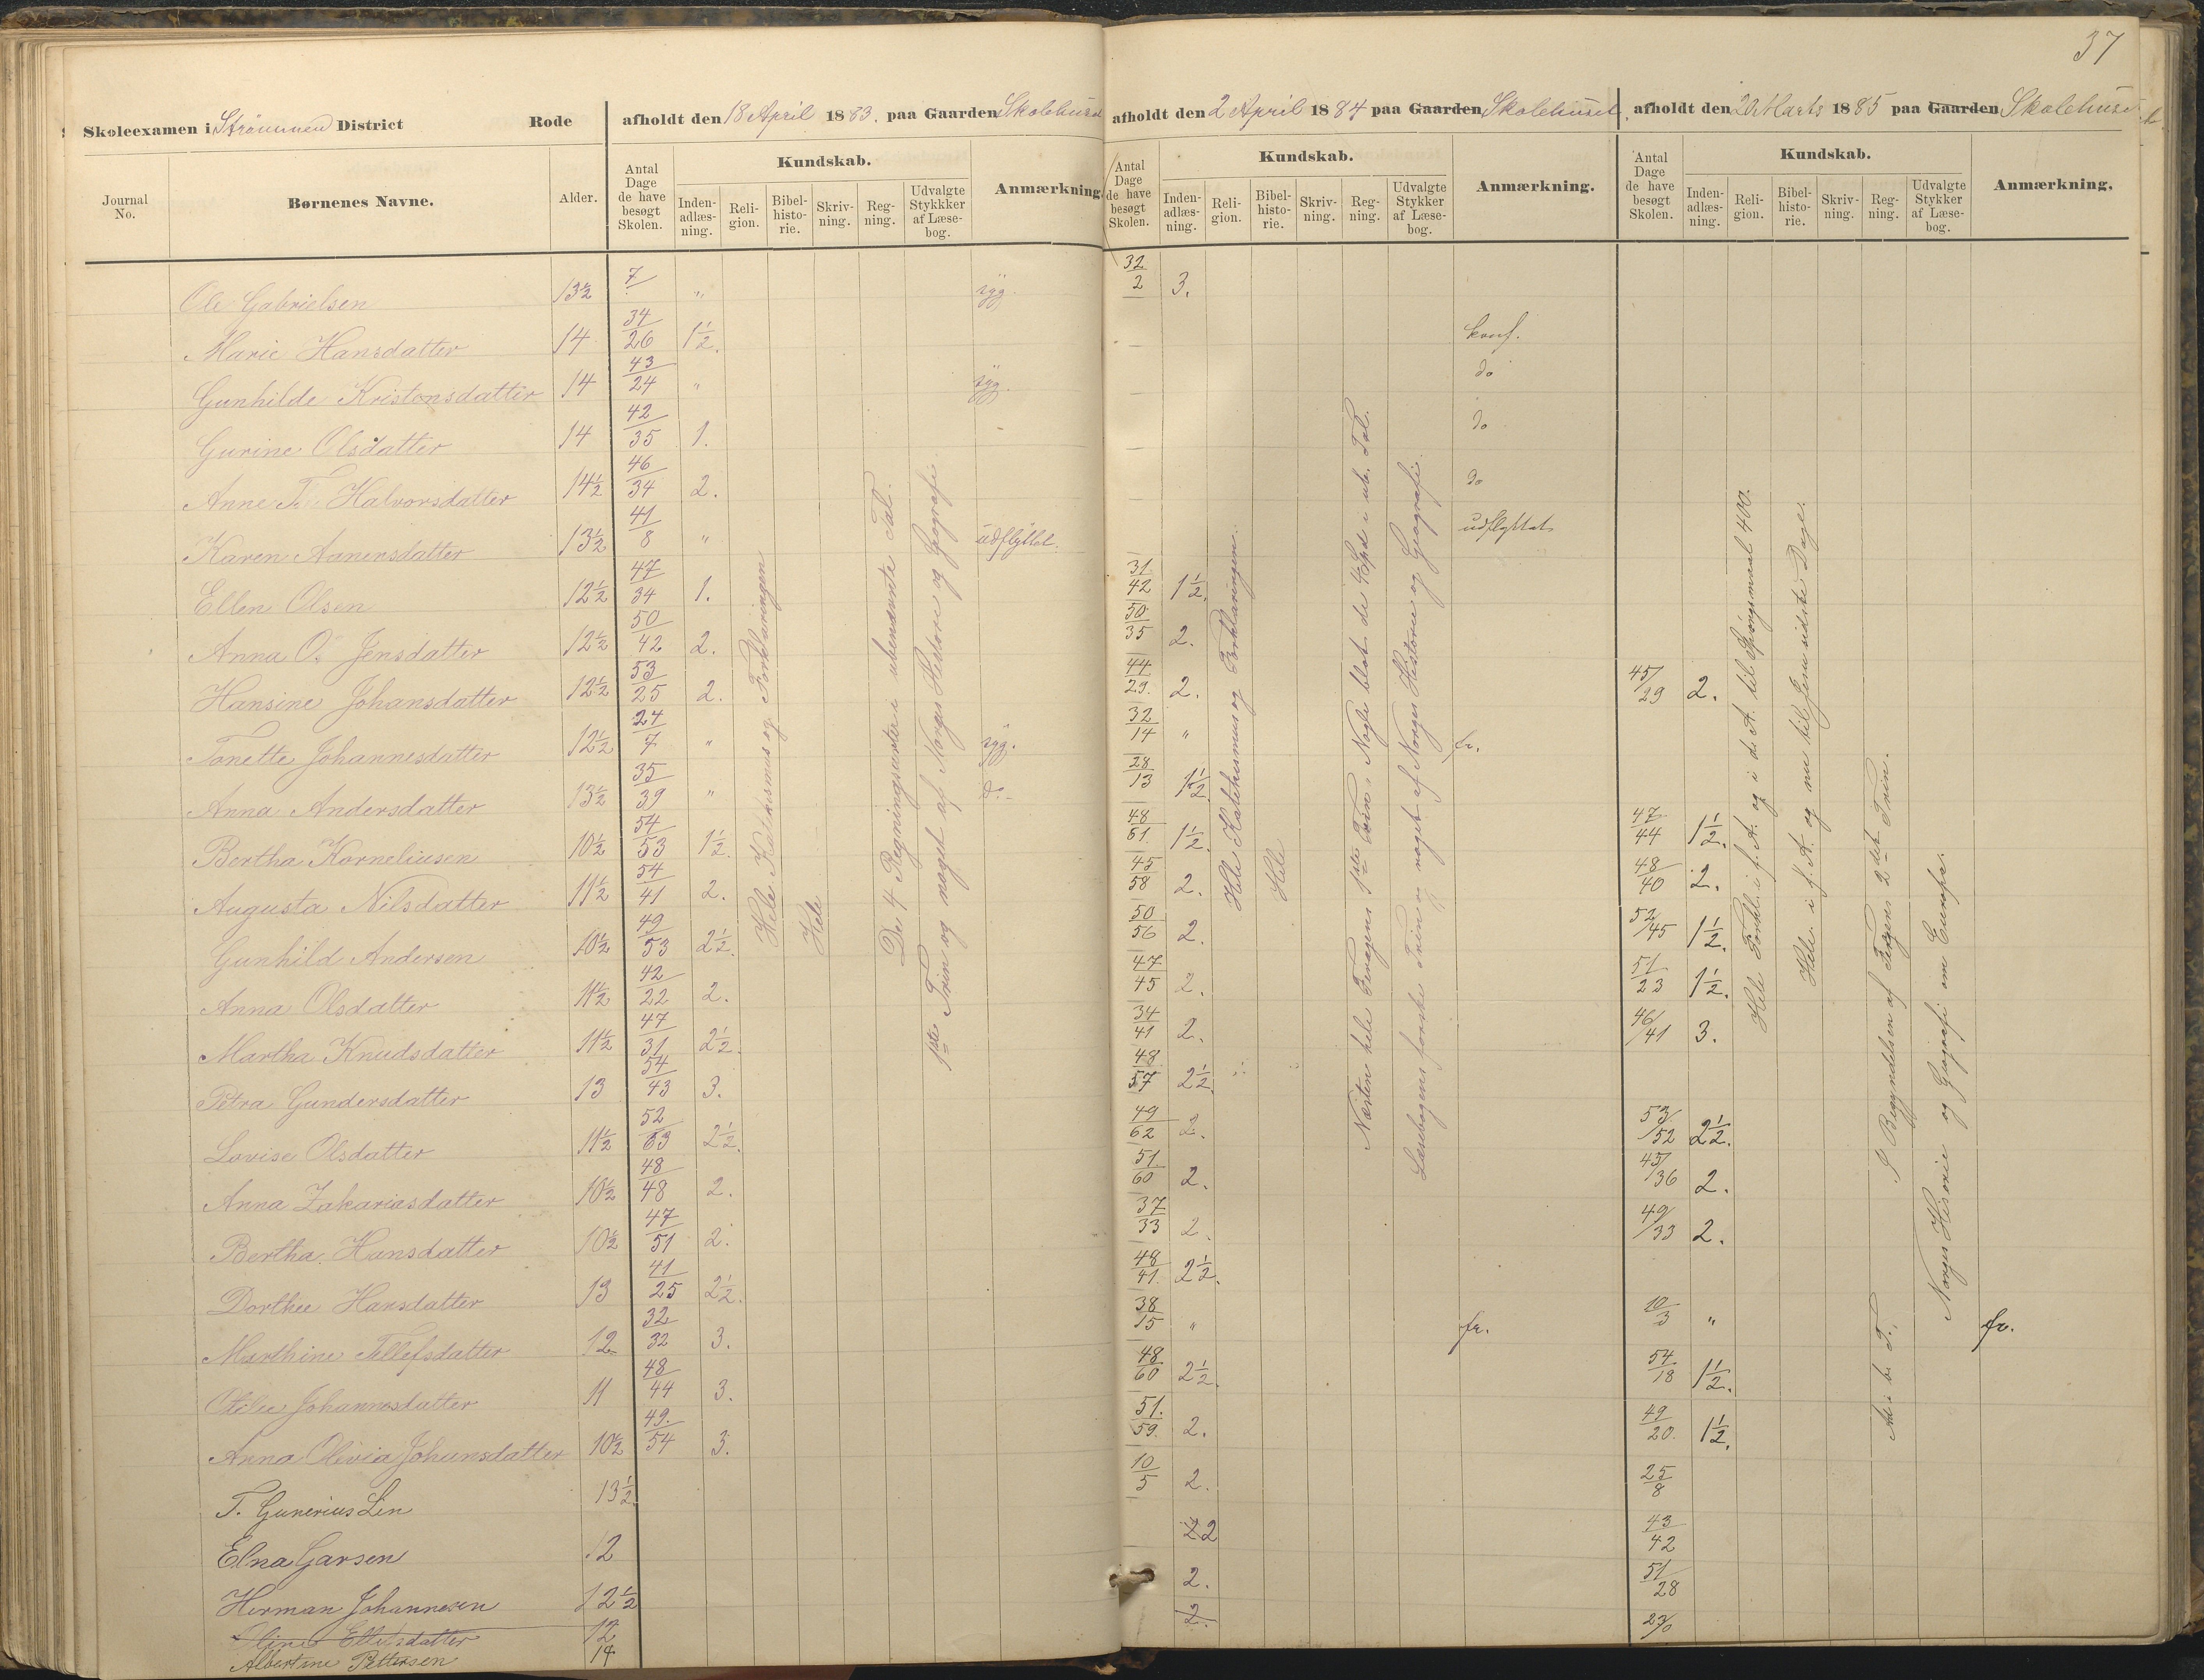 37
Skoleexamen i Strømmen District Rode afholdt den 18 April 1883. paa Gaarden Skolehuset
afholdt den 2 April 1884 paa Gaarden Skolehuset. afholdt den 20 Marts 1885 paa Gaarden Skolehuset
Journal No. Børnenes Navne. Alder. Antal Dage de have besøgt Skolen. Kundskab. Indenadlæsning. Religion. Bibelhistorie. Skrivning. Regning. Udvalgte Stykker af Læsebog. Anmærkning.
Antal Dage de have besøgt Skolen. Kundskab. Indenadlæsning. Religion. Bibelhistorie. Skrivning. Regning. Udvalgte Stykker af Læsebog. Anmærkning.
Antal Dage de have besøgt Skolen. Kundskab. Indenadlæsning. Religion. Bibelhistorie. Skrivning. Regning. Udvalgte Stykker af Læsebog. Anmærkning.
Ole Gabrielsen 13½ 7 " syg 32/2 3.
Marie Hansdatter 14 34/26 1½. konf.
Gunhilde Kristensdatter 14 43/24 " syg. do
Gurine Olsdatter 14 42/35 1. do
Anne T. Halvorsdatter 14½ 46/34 2. do
Karen Aanensdatter 13½ 41/8 " udflyttet. udflyttet
Ellen Olsen 12½ 47/34 1. 31/42 1½.
Anna O. Jensdatter 12½ 50/42 2. 50/35 2.
Hansine Johansdatter 12½ 53/25 2. 44/29. 2. 45/29 2.
Tonette Johannesdatter 12½ 24/7 " syg. 32/14 " fr.
Anna Andersdatter 13½ 35/39 " do 28/13 1½.
Bertha Korneliusen 10½ 54/53 1½. 48/61. 1½. 47/44 1½.
Augusta Nilsdatter 11½ 54/41 2. 45/58 2. 48/40 2.
Gunhild Andersen 10½ 49/53 2½. 50/56 2. 52/45 1½.
Anna Olsdatter 11½ 42/22 2. 47/45 2. 51/23 1½.
Martha Knudsdatter 11½ 47/31 2½. 34/41 2. 46/41 3.
Petra Gundersdatter 13 54/43 3. 48/57 2½.
Lovise Olsdatter 11½ 52/63 2½. 49/62 2. 53/52 2½.
Anna Zakariasdatter 10½ 48/48 2. 51/60 2. 45/36 2.
Bertha Hansdatter 10½ 47/51 2. 37/33 2. 49/33 2.
Dorthee Hansdatter 13 41/25 2½. 48/41. 2½.
Marthine Tellefsdatter 12 32/32 3. 38/15 " fr. 10/3 " fr.
Otilie Johannesdatter 11 48/44 3. 48/60 2½. 54/18 1½.
Anna Olivia Johansdatter 10½ 49./54 3. 51./59. 2. 49/20. 1½.
T. Gunerius Lin 13½ 10/5 2. 25/8
Elna Garsen 12 2 43/42
Herman Johannesen 12½ 2. 51/28
12 2. 23/0
Albertine Pettersen 14
Hele Katekismus og Forklaringen
Hele
De 4 Regningsarter i ubenævnte Tal.
1ste Trin og noget af Norges Historie og Geografi
Hele Katekismus og Forklaringen.
Hele
Næsten hele Fragens 1ste Trin. Nogle blot de 4 Spd i ub. Tal.
Læsebogens første Trin og noget af Norges Historie og Geografi.
Hele Forkl. i f. A. og i d. A. til Spørgsmaal 400.
Hele i f. A. og nu til Jesu sidste Dage.
I Begyndelsen af Fragens 2det Trin.
Norges Historie og Geografi om Europa.